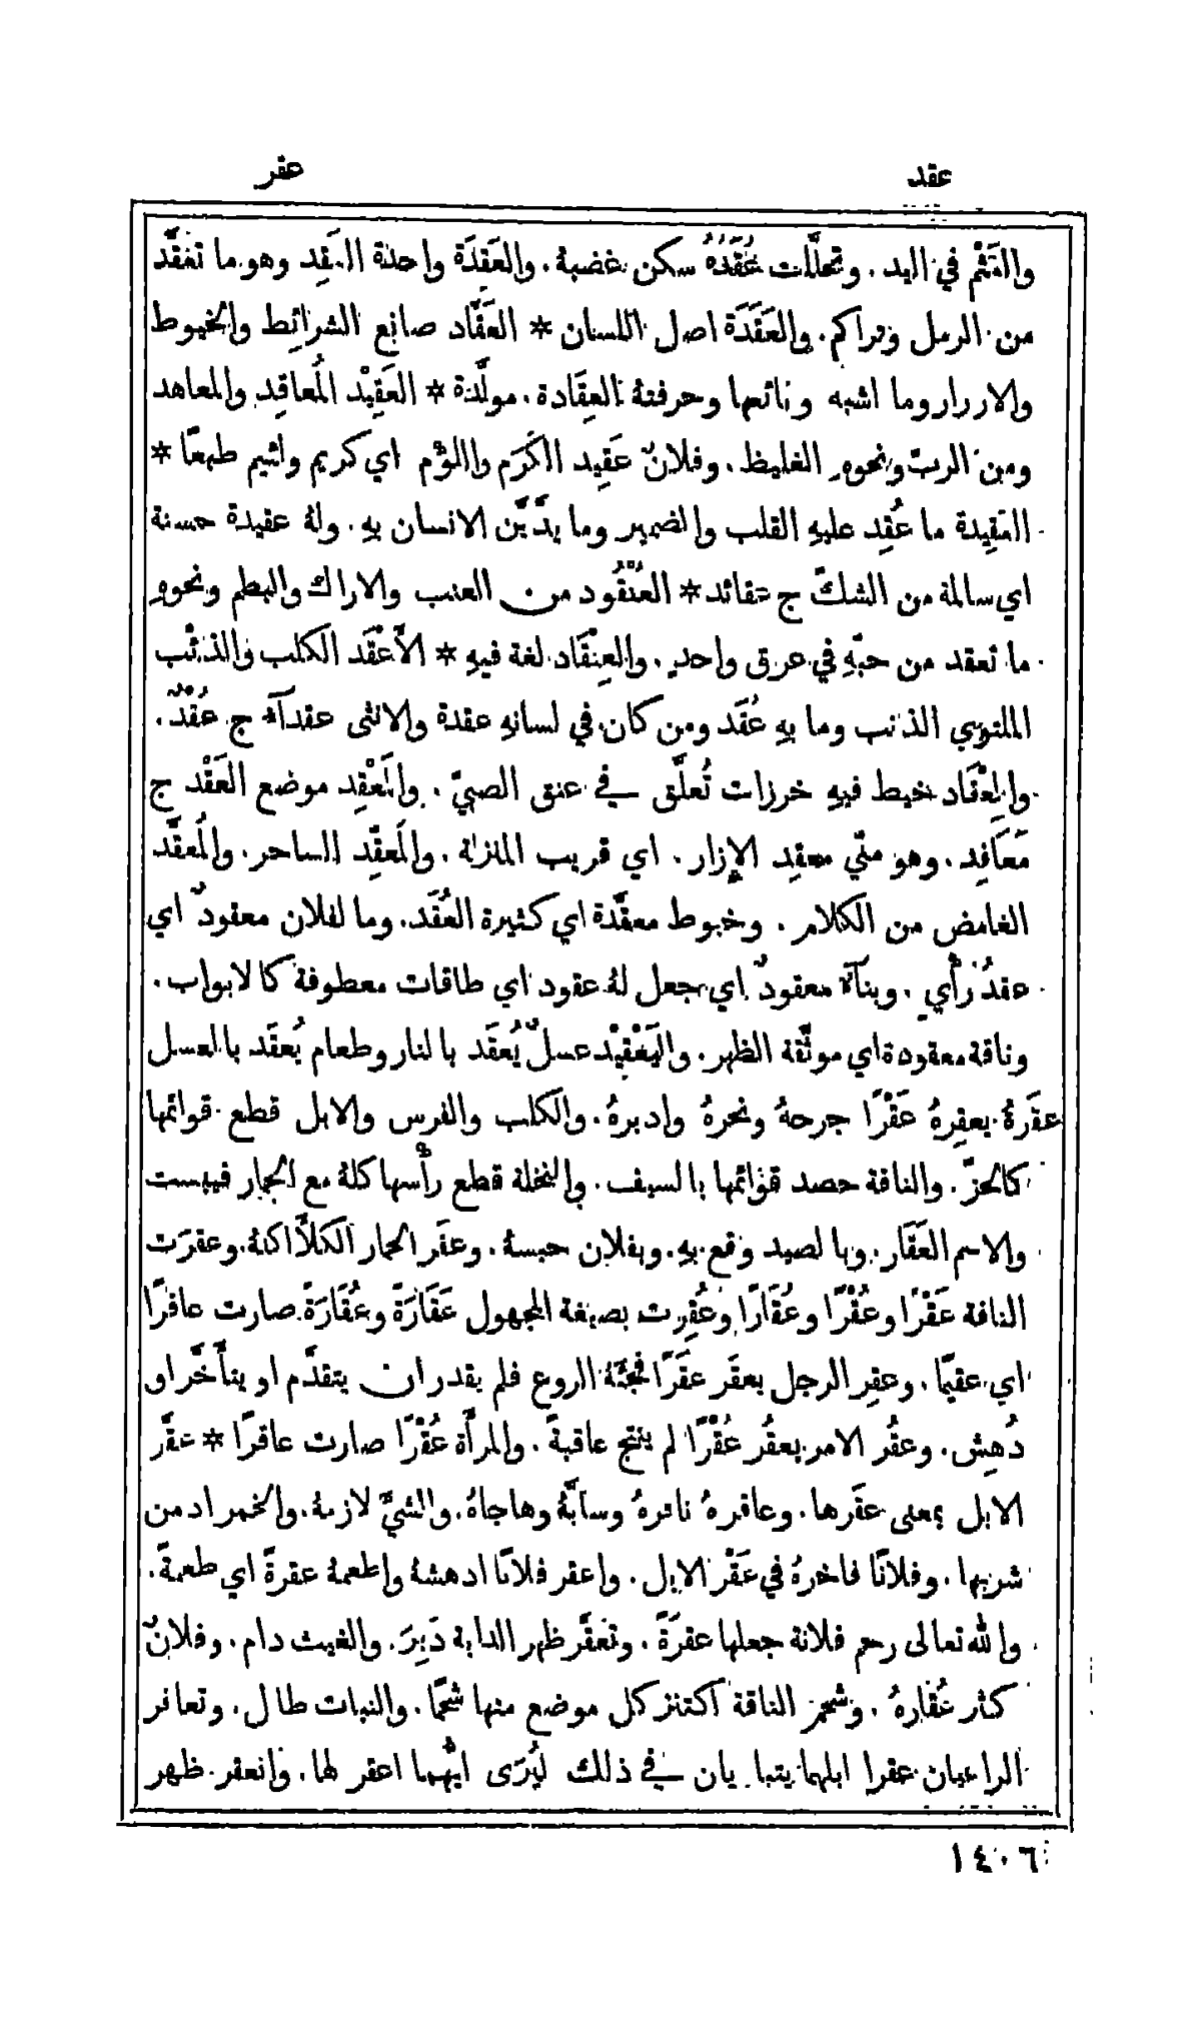 عقد
عقر
والعَثْم في اليد. وتحلَّلت عُقَدُهُ سكن غضبهُ. والعَقِدَة واحدة العَقِد وهو ما تعقَّد
من الرمل وتراكم. والعَقَدَة اصل اللسان * العَقَّاد صانع الشرائط والخيوط
والازرار وما اشبه وبائعها وحرفتهُ العِقَادة. مولَّدة * العَقِيْد المُعاقِد والمعاهد
ومن الربّ ونحوهِ الغليظ. وفلانٌ عَقِيد الكَرَم واللؤم اي كريم ولئيم طبعًا *
العَقِيدة ما عُقِد عليهِ القلب والضمير وما يدَّيَّن الانسان بهِ. ولهُ عقيدة حسنة
اي سالمة من الشكّ ج عقائد * العُنْقُود من العنب والاراك والبطم ونحوهِ
ما تعقد من حبّهِ في عرق واحدٍ. والعِنْقَاد لغة فيهِ * الأَعْقَد الكلب والذئب
الملتوي الذنب وما بهِ عُقَد ومن كان في لسانهِ عقدة والانثى عقدآء ج عُقْدٌ.
والمِعْقَاد خيط فيهِ خرزات تُعلَّق في عنق الصبيّ. والمَعْقِد موضع العَقْد ج
مَعَاقِد. وهو منّي معقِد الإزار. اي قريب المنزلة. والمُعقِّد الساحر. والمُعقَّد
الغامض من الكلام. وخيوط معقَّدة اي كثيرة العُقَد. وما لفلان معقودٌ اي
عقدُ رأْيٍ. وبنآء معقودٌ اي جعل لهُ عقود اي طاقات معطوفة كالابواب.
وناقة معقودة اي موثَّقة الظهر. واليَعْقِيْد عسلٌ يُعقَد بالنار وطعام يُعقَد بالعسل
عقَرهُ يعقِرهُ عَقْرًا جرحهُ ونحرهُ وادبرهُ. والكلب والفرس والابل قطع قوائمها
كالحزّ. والناقة حصد قوائمها بالسيف. والنخلة قطع رأْسها كلهُ مع الجمار فيبست
والاسم العَقَار. وبالصيد وقع بهِ. وبفلان حبسهُ. وعقَر الحمار الكلأَ اكلهُ. وعقرَت
الناقة عَقْرًا وعُقْرًا وعُقَارًا وعُقِرت بصيغة المجهول عَقَارَةً وعُقَارَةً صارت عاقرًا
اي عقيمًا. وعقِر الرجل يعقَر عقَرًا فجئَهُ الروع فلم يقدر ان يتقدَّم او يتأَخَّر او
دُهِش. وعقُر الامر يعقُر عُقْرًا لم ينتج عاقبةً. والمرأَة عُقْرًا صارت عاقرًا * عقَّر
الابل بمعنى عقَرها. وعاقرهُ نافرهُ وسابَّهُ وهاجاهُ. والشيَّ لازمهُ. والخمر ادمن
شربها. وفلانًا فاخرهُ في عَقْر الابل. واعقر فلانًا ادهشهُ واطعمهُ عقرةً اي طعمةً.
والله تعالى رحم فلانة جعلها عقرَةً. وتعقَّر ظهر الدابة دَبِرَ. والغيث دام. وفلانٌ
كثر عُقَارهُ. وشحم الناقة اكتنز كل موضع منها شحمًا. والنبات طال. وتعاقر
الراعيان عقرا ابلهما يتباريان في ذلك ليُرَى ايُّهما اعقر لها. وانعقر ظهر
١٤٠٦